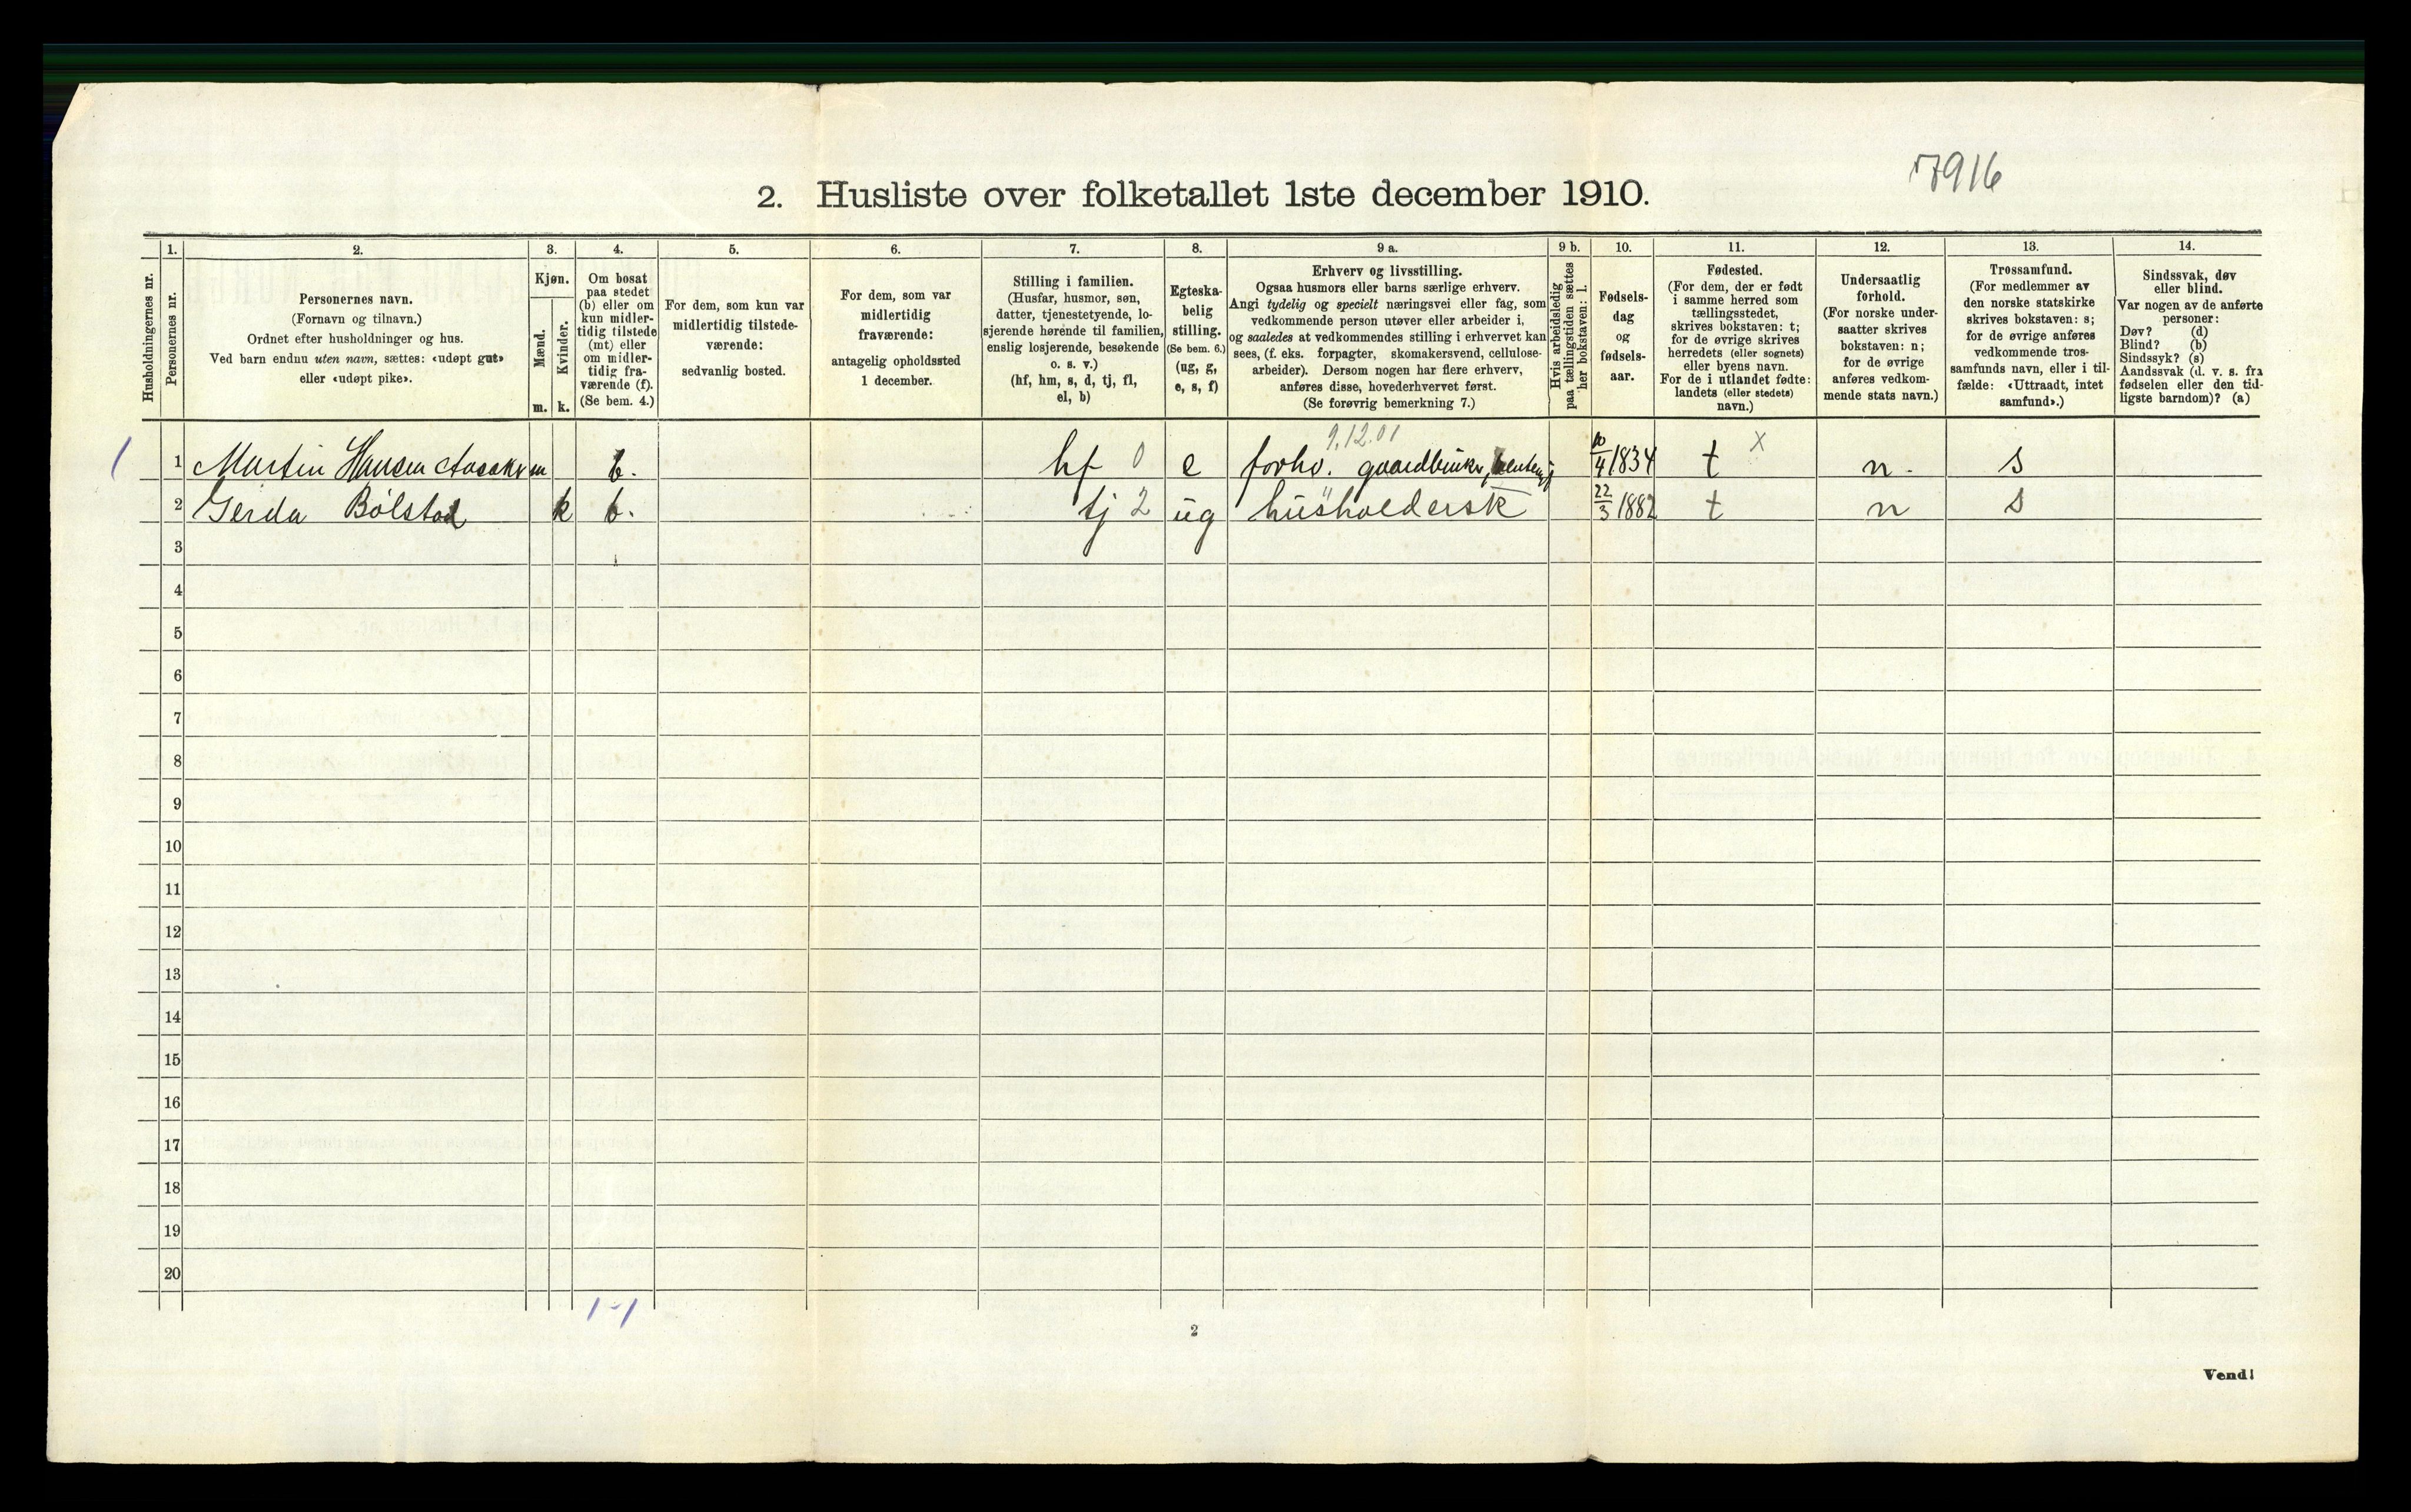 7916
2. Husliste over folketallet 1ste december 1910.
1. 2. 3. 4. 5. 6. 7. 8. 9 a. 9 b. 10. 11. 12. 13. 14.
Husholdningernes nr.
Personernes nr.
Personernes navn.
(Fornavn og tilnavn.)
Ordnet efter husholdninger og hus.
Ved barn endnu uten navn, sættes: «udøpt gut»
eller «udøpt pike».
Kjøn.
Mænd.
Kvinder.
m. k.
Om bosat
paa stedet
(b) eller om
kun midler-
tidig tilstede
(mt) eller
om midler-
tidig fra-
værende (f).
(Se bem. 4.)
For dem, som kun var
midlertidig tilstede-
værende:
sedvanlig bosted.
For dem, som var
midlertidig
fraværende:
antagelig opholdssted
1 december.
Stilling i familien.
(Husfar, husmor, søn,
datter, tjenestetyende, lo-
sjerende hørende til familien,
enslig losjerende, besøkende
o. s. v.)
(hf, hm, s, d, tj, fl,
el, b)
Egteska-
belig
stilling.
(Se bem. 6.)
(ug, g,
e, s, f)
Erhverv og livsstilling.
Ogsaa husmors eller barns særlige erhverv.
Angi tydelig og specielt næringsvei eller fag, som
vedkommende person utøver eller arbeider i,
og saaledes at vedkommendes stilling i erhvervet kan
sees, (f. eks. forpagter, skomakersvend, cellulose-
arbeider). Dersom nogen har flere erhverv,
anføres disse, hovederhvervet først.
(Se forøvrig bemerkning 7.)
Hvis arbeidsledig
paa tællingstiden sættes
her bokstaven: l.
Fødsels-
dag
og
fødsels-
aar.
Fødested.
(For dem, der er født
i samme herred som
tællingsstedet,
skrives bokstaven: t;
for de øvrige skrives
herredets (eller sognets)
eller byens navn.
For de i utlandet fødte:
landets (eller stedets)
navn.)
Undersaatlig
forhold.
(For norske under-
saatter skrives
bokstaven: n;
for de øvrige
anføres vedkom-
mende stats navn.)
Trossamfund.
(For medlemmer av
den norske statskirke
skrives bokstaven: s;
for de øvrige anføres
vedkommende tros-
samfunds navn, eller i til-
fælde: «Uttraadt, intet
samfund».)
Sindssvak, døv
eller blind.
Var nogen av de anførte
personer:
Døv? (d)
Blind? (b)
Sindssyk? (s)
Aandssvak (d. v. s. fra
fødselen eller den tid-
ligste barndom)? (a)
9.12.01
1 1 Martin Hansen m b. hf 0 e forhv. gaardbruker, 10/4 1834 t x n. s
2 Gerda Bølstad k b. tj 2 ug husholdersk 22/3 1882 t n s
3
4
5
6
7
8
9
10
11
12
13
14
15
16
17
18
19
20
1-1
2
Vend!